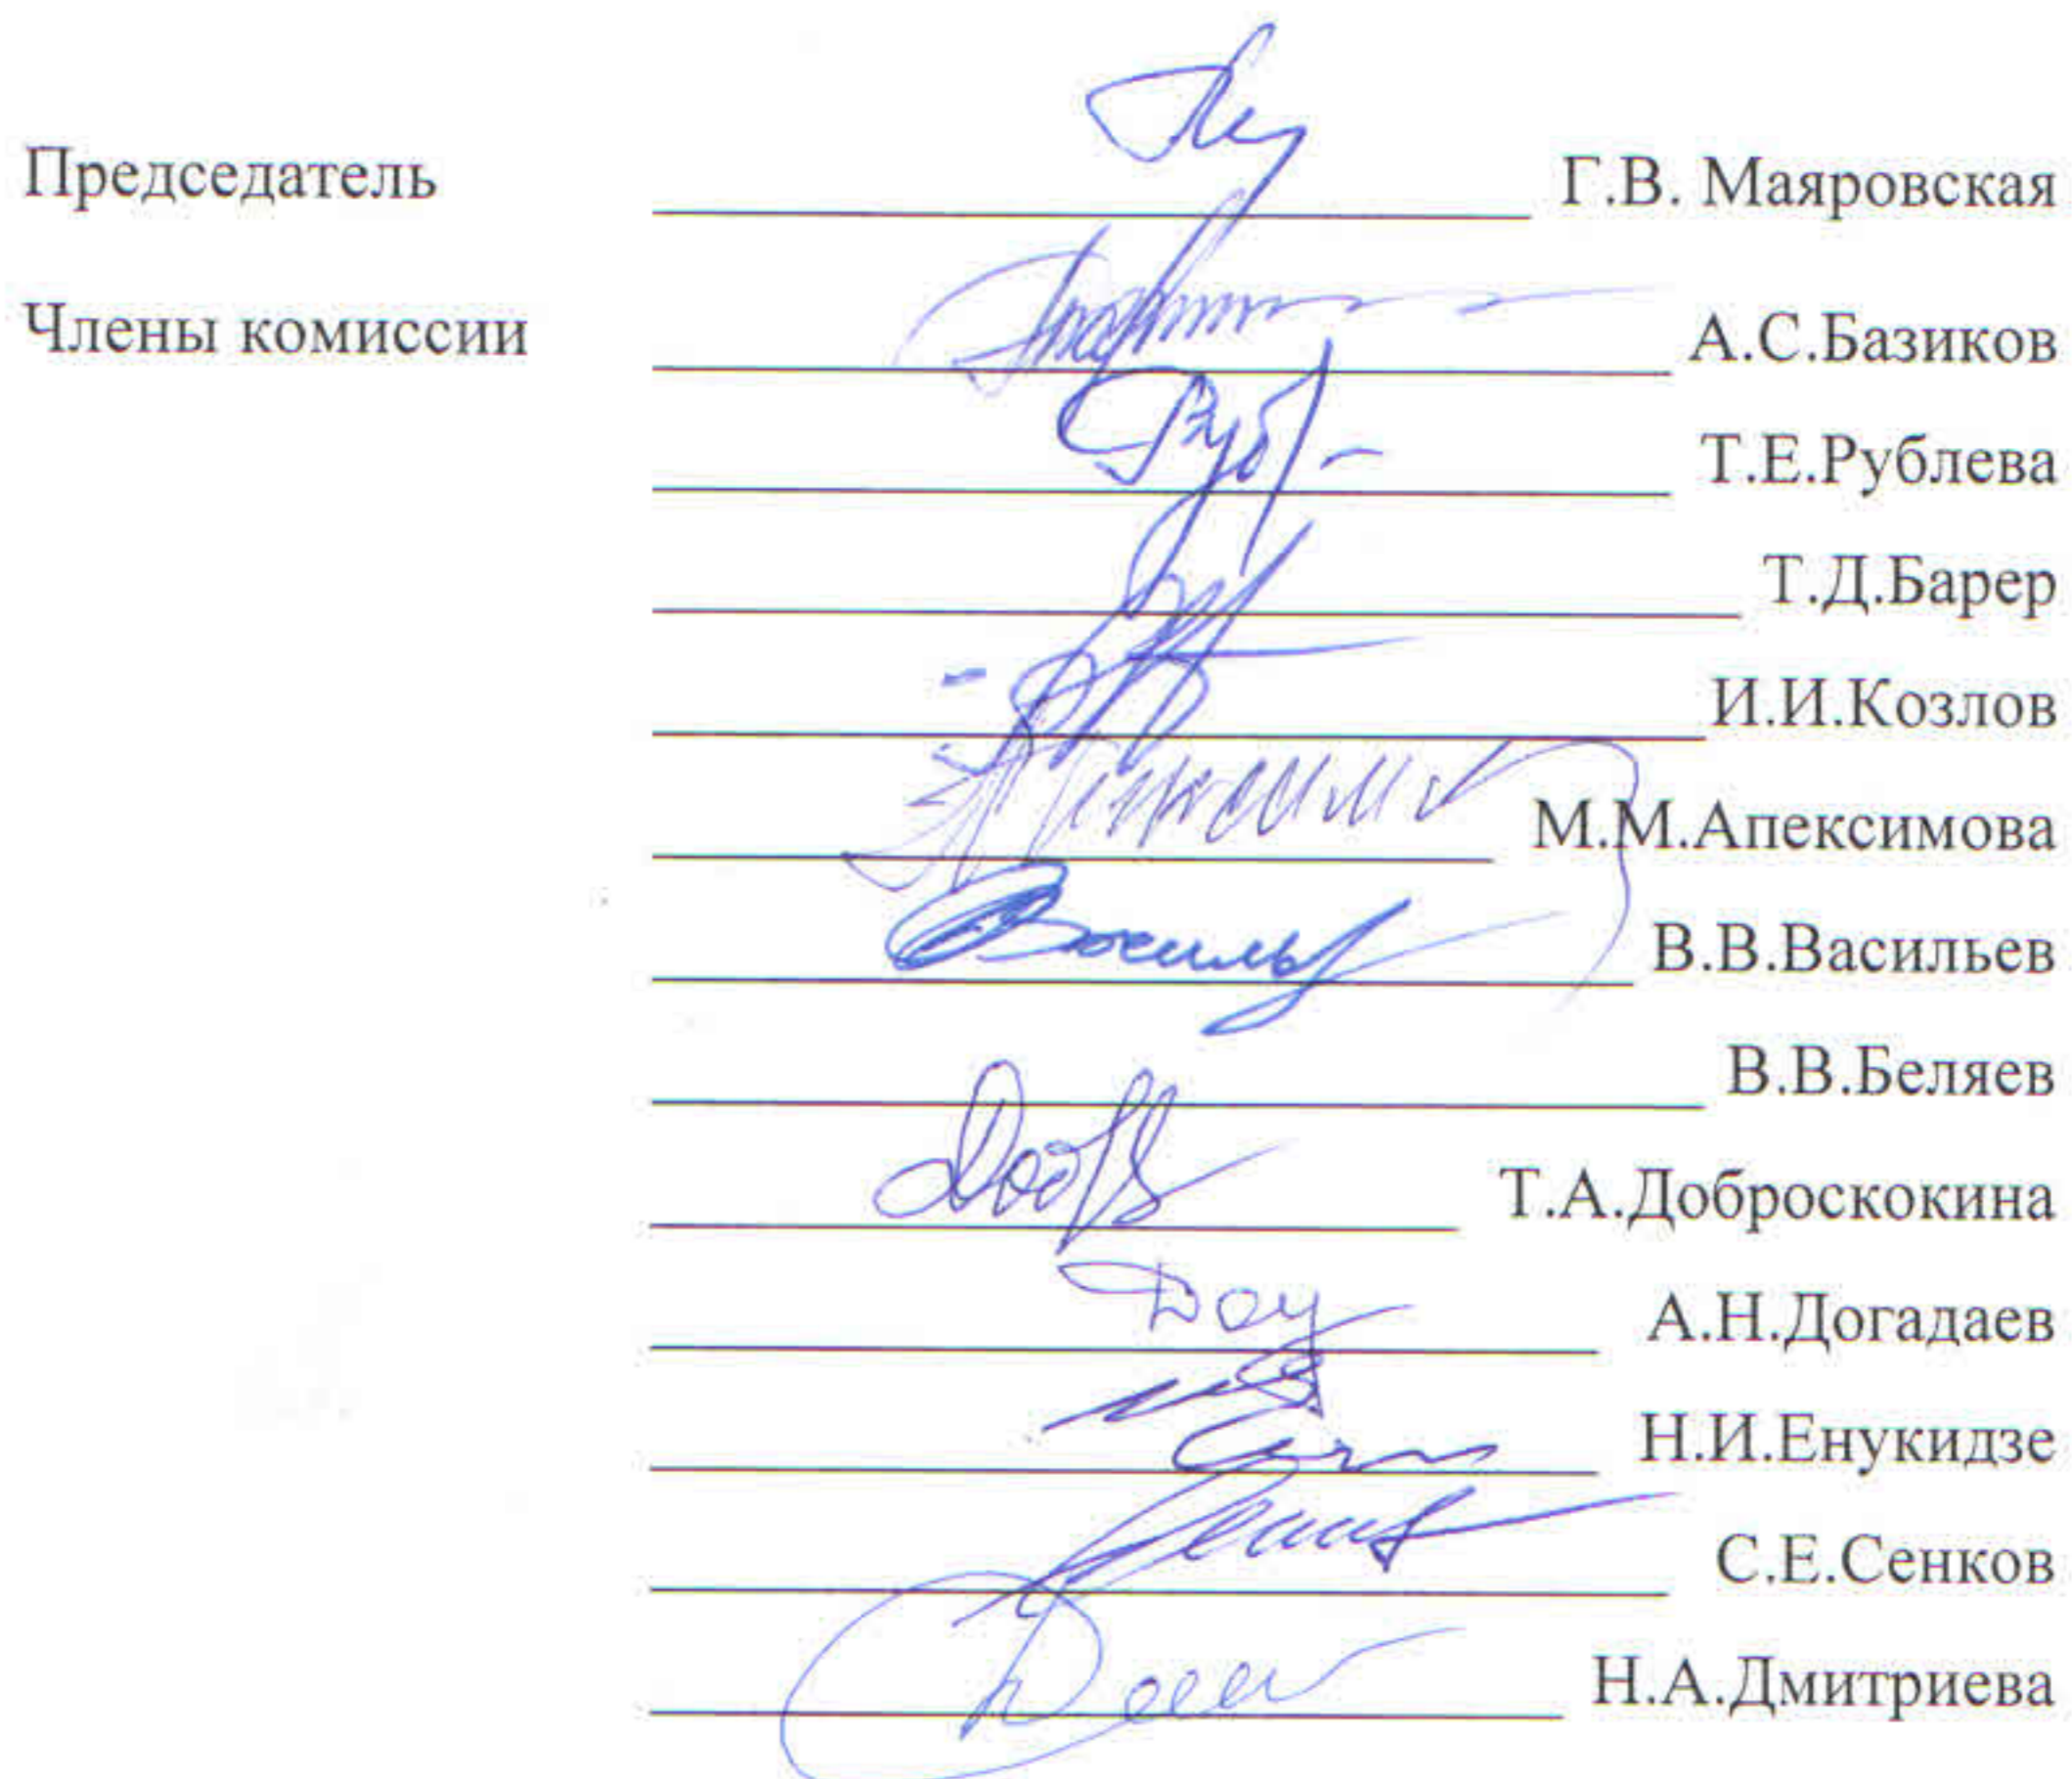 Председатель Г.В. Маяровская
Члены комиссии А.С.Базиков
Т.Е.Рублева
Т.Д.Барер
И.И.Козлов
М.М.Апексимова
В.В.Васильев
В.В.Беляев
Т.А.Доброскокина
А.Н.Догадаев
Н.И.Енукидзе
С.Е.Сенков
Н.А.Дмитриева